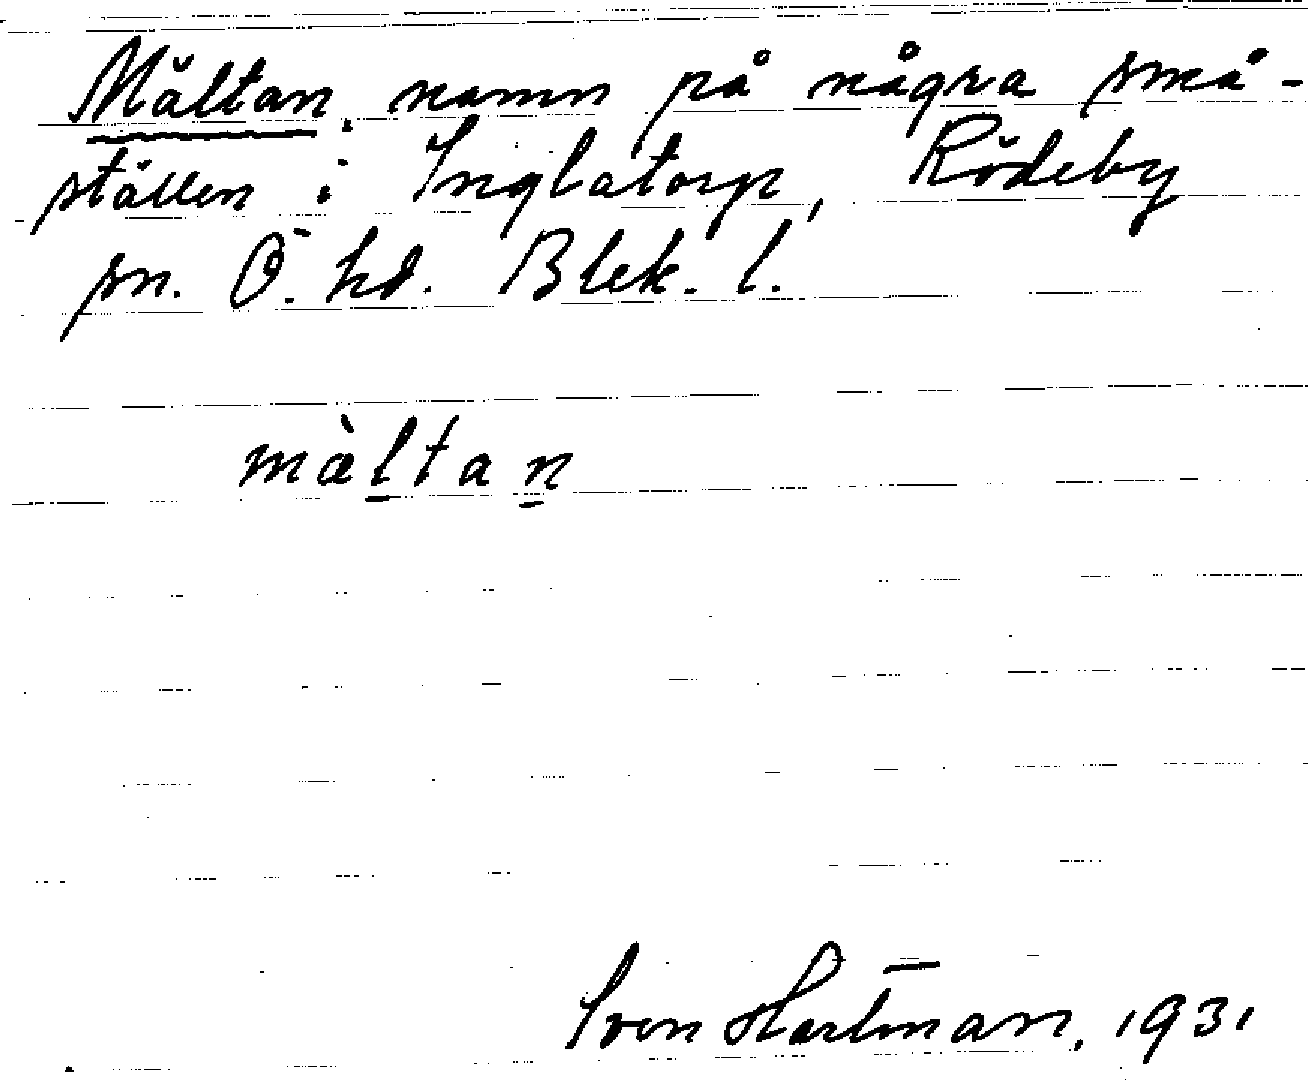 Mältan, namn på några små-
ställen i Inglatorp, Rödeby
sn. Ö. hd. Blek. l.
mæ̀ltan
Sven Hartman, 1931